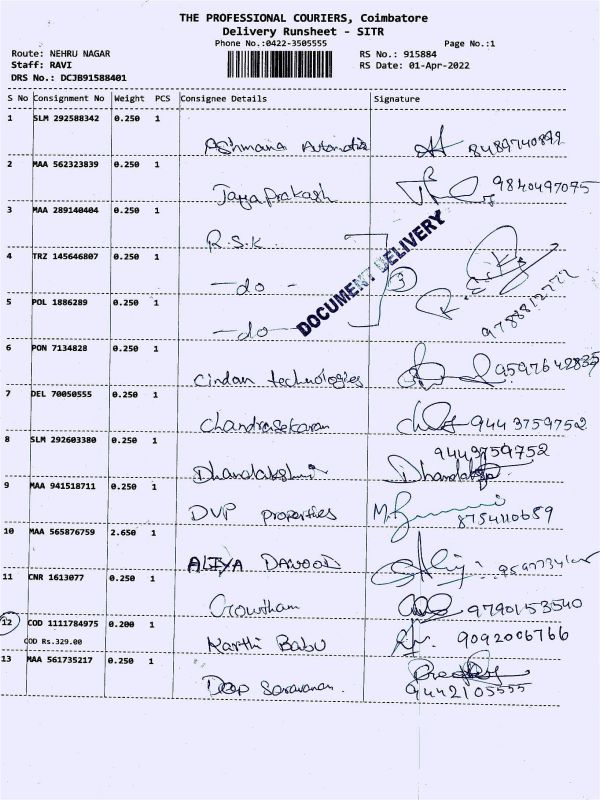 THE PROFESSIONAL COURIERS, Coimbatore
Delivery Runsheet - SITR
Phone No.:0422-3505555 Page No.:1
Route: NEHRU NAGAR RS No.: 915884
Staff: RAVI RS Date: 01-Apr-2022
DRS No.: DCJB91588401
S No Consignment No Weight PCS Consignee Details Signature
1 SLM 292588342 0.250 1
8489740892
2 MAA 562323839 0.250 1
Jayaprakash 9840497075
3 MAA 289140404 0.250 1
R.S.K.
4 TRZ 145646807 0.250 1
-do-
DOCUMENT DELIVERY
3
5 POL 1886289 0.250 1
-do-
6 PON 7134828 0.250 1
Cindan technologies 9597642835
7 DEL 70050555 0.250 1
Chandrasekaran 9443759752
8 SLM 292603380 0.250 1
9443759752
Dhanalakshmi
9 MAA 941518711 0.250 1
DVP properties 8754110659
10 MAA 565876759 2.650 1
ALIYA DAWOOD
11 CNR 1613077 0.250 1
Gowtham 9790153540
12 COD 1111784975 0.200 1
COD Rs.329.00
Karthi Babu 9092006766
13 MAA 561735217 0.250 1
Deep Saravanan.
9442105555